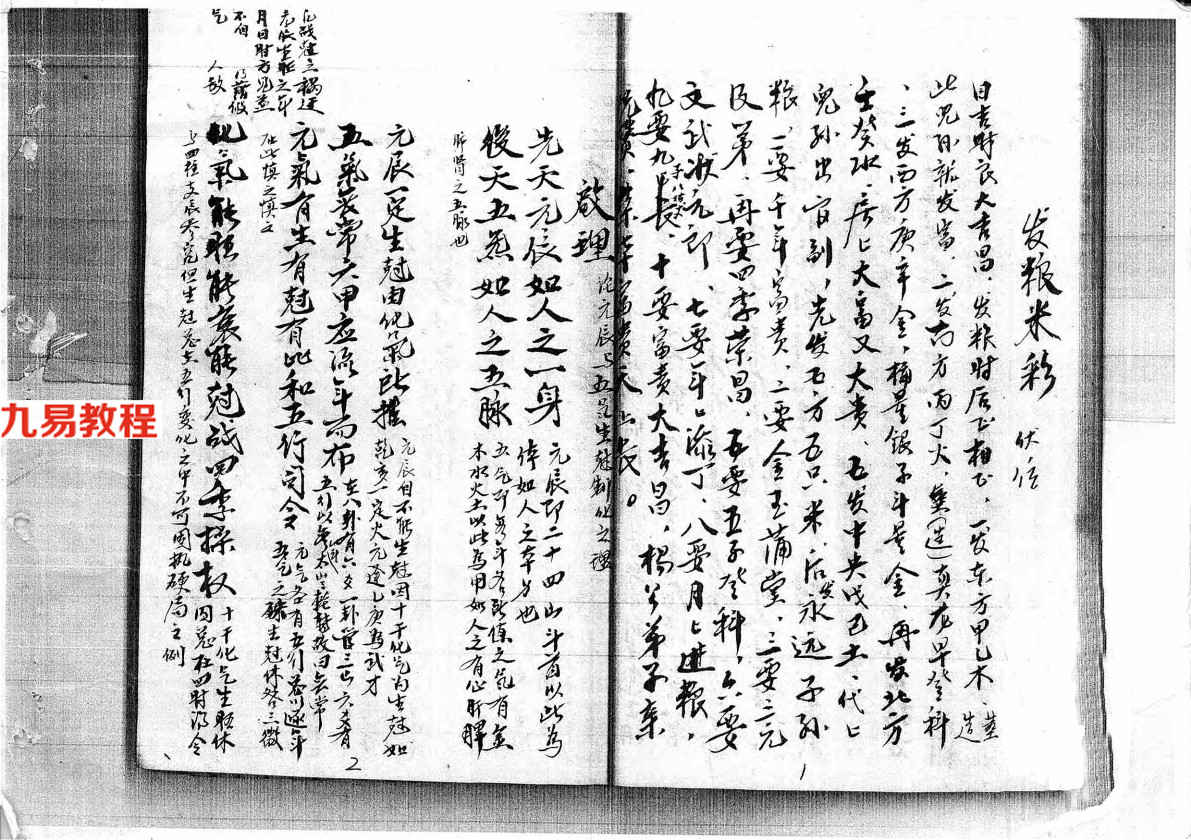 发粮米彩 伏位
日吉时良大吉昌、发粮时后正相正、一发东方甲乙木、
此儿孙就发富、二发南方丙丁火、葬(造)真龙早登科
、三发西方庚辛金、桶量银子斗量金、再发北方
壬癸水、房房大富又大贵、五发中央戊己土、代代
儿孙出官副、先发五方五只米、后发永远子孙
粮、一要千年富贵、二要金玉满堂、三要三元
及第、再要四季荣昌、五要五子登科、六要
文武状元郎、七要年年添丁、八要月月进粮、
九要九长、十要富贵大吉昌、杨公弟子亲
启理 论元辰与五气生尅制化之理
先天元辰如人之一身 元辰即二十四山斗首以此为
体如人之本身也
后天五炁如人之五脉 五气即每年各所值之气有金
木水火土以此为用如人之有心肝脾
肺肾之五脉也
元辰一定生尅由化气所推 元辰自不能生尅因十干化气为生尅如
乾亥一定火元逢乙庚为武才
五气无常六甲应流年而布
元气有生有尅有比和五行司令
化气能旺能衰能尅战四季操权 十干化气生旺休
囚冤在四时得令
与四柱支辰参究但生尅总在五行变化之中不可固执硬局之例
在此慎之慎之
九易教程
1
2